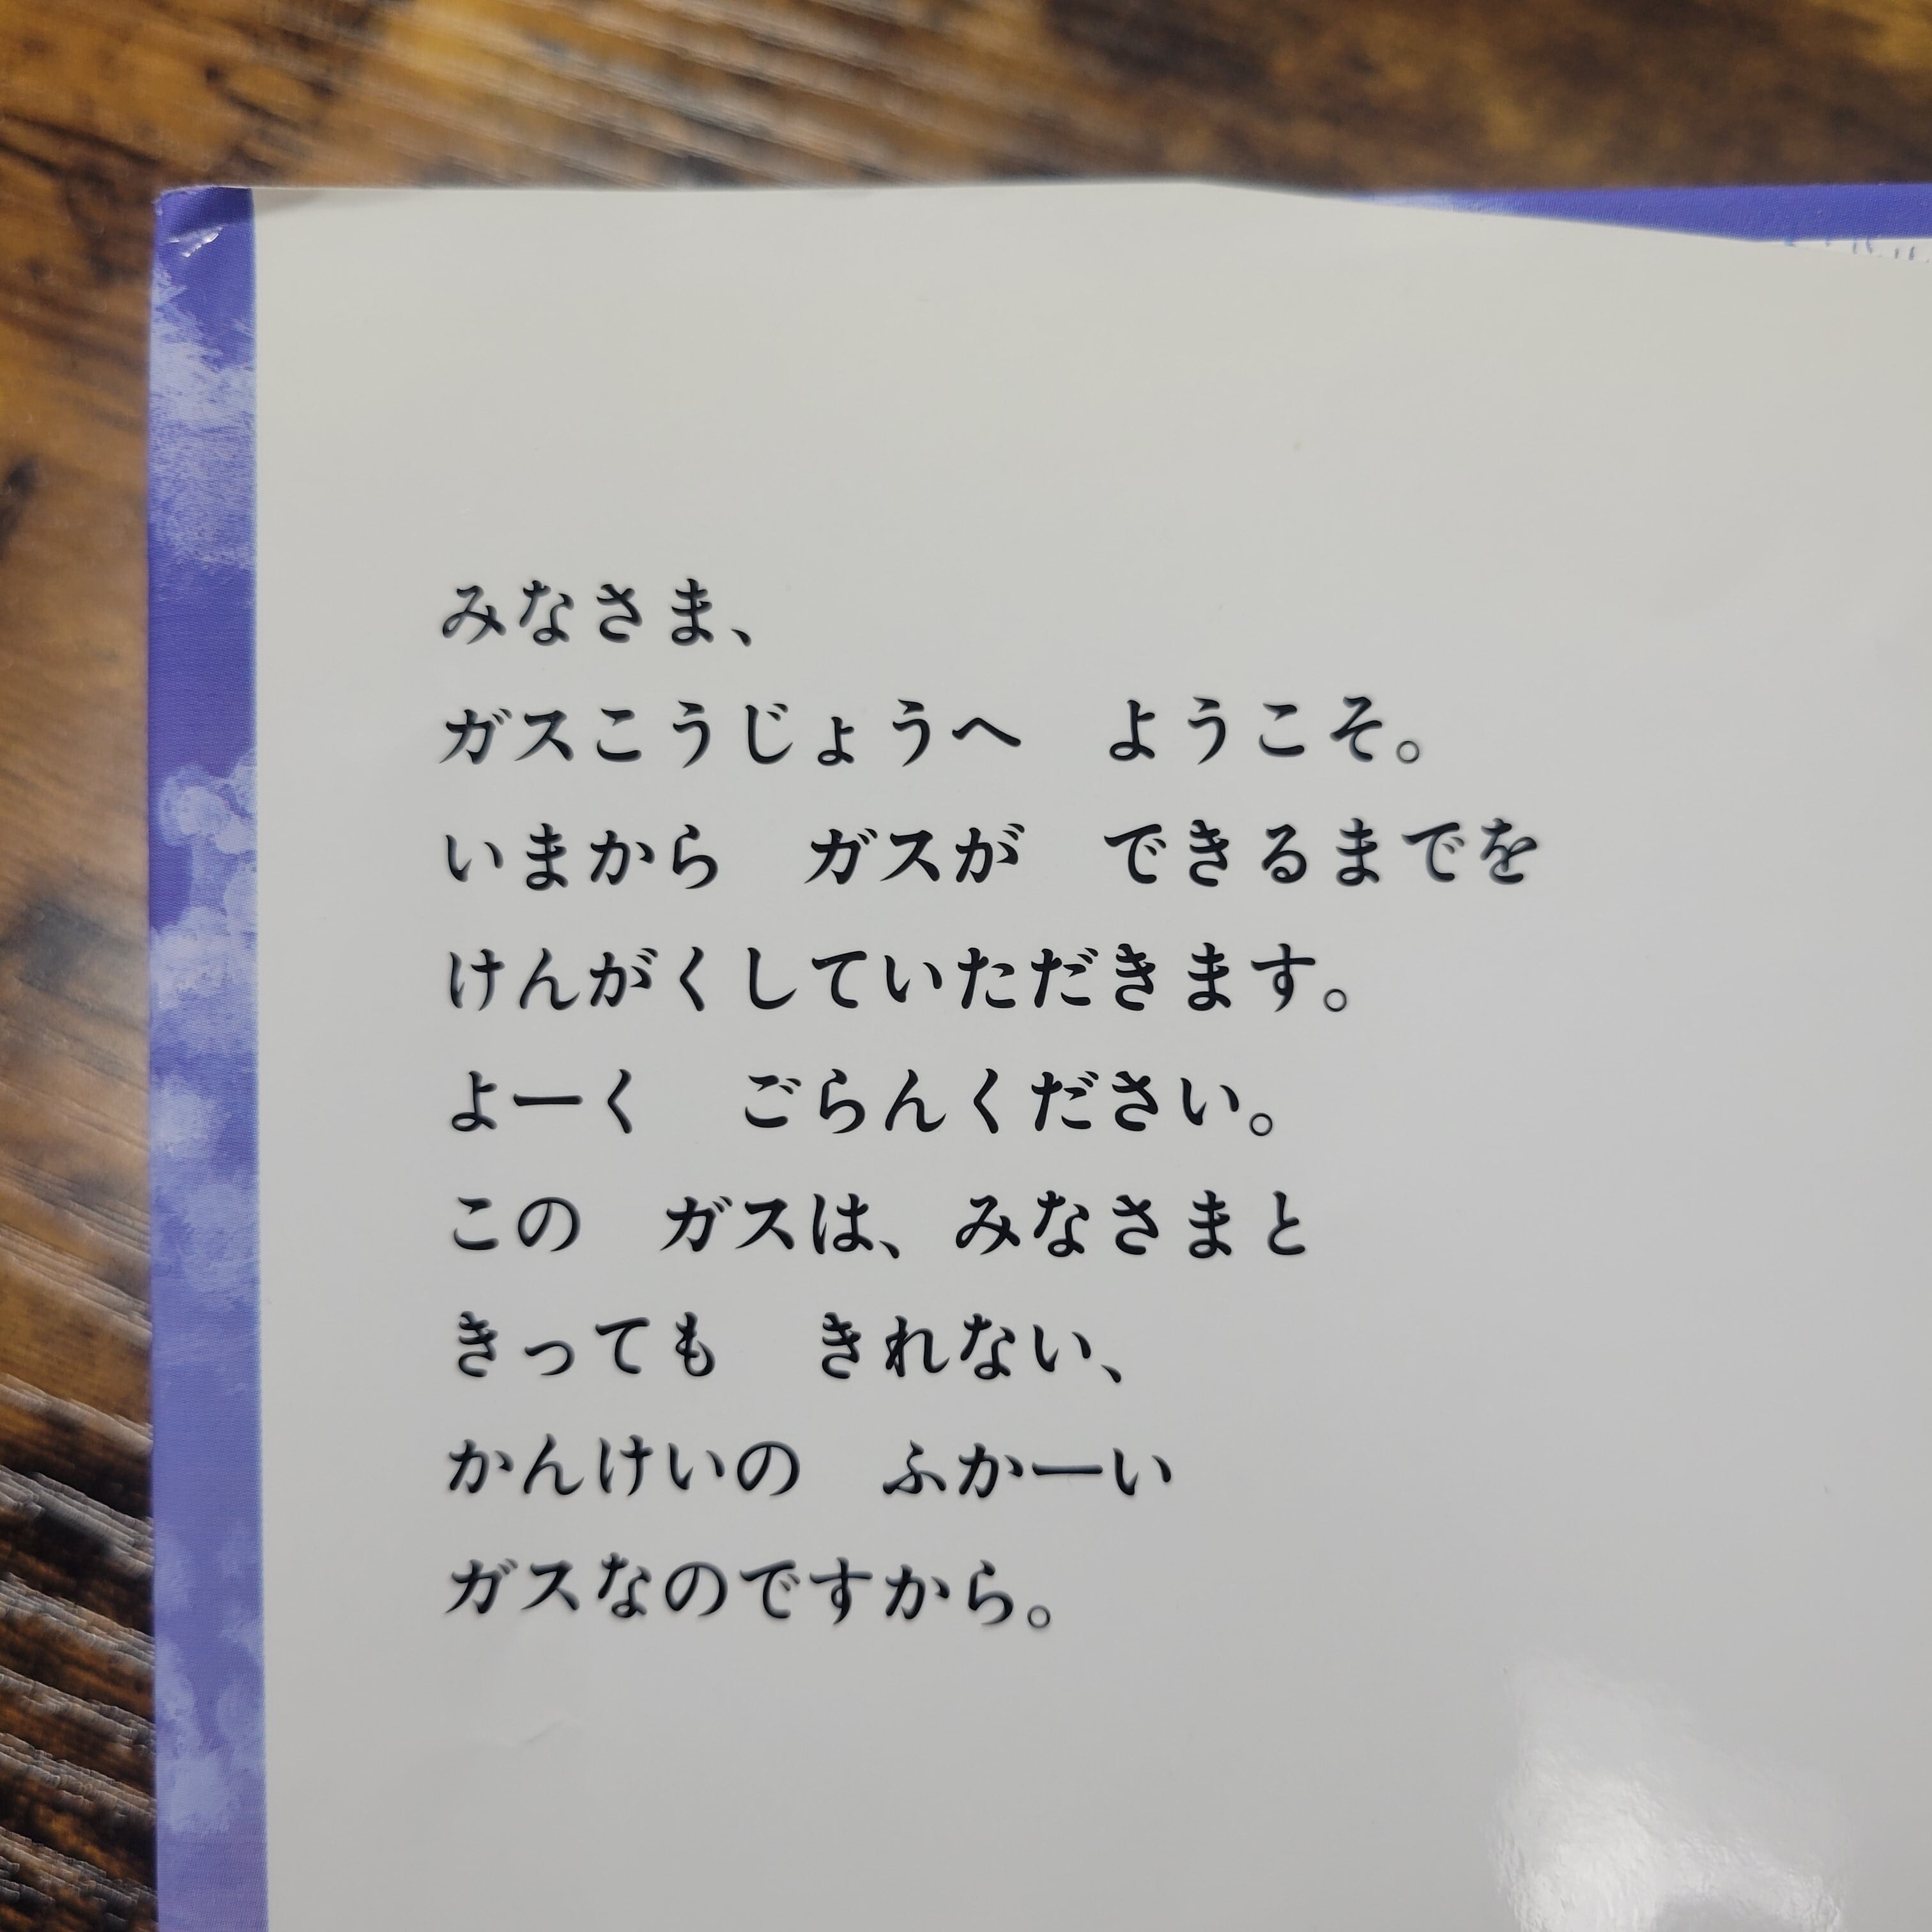 みなさま、
ガスこうじょうへ　ようこそ。
いまから　ガスが　できるまでを
けんがくしていただきます。
よーく　ごらんください。
この　ガスは、みなさまと
きっても　きれない、
かんけいの　ふかーい
ガスなのですから。